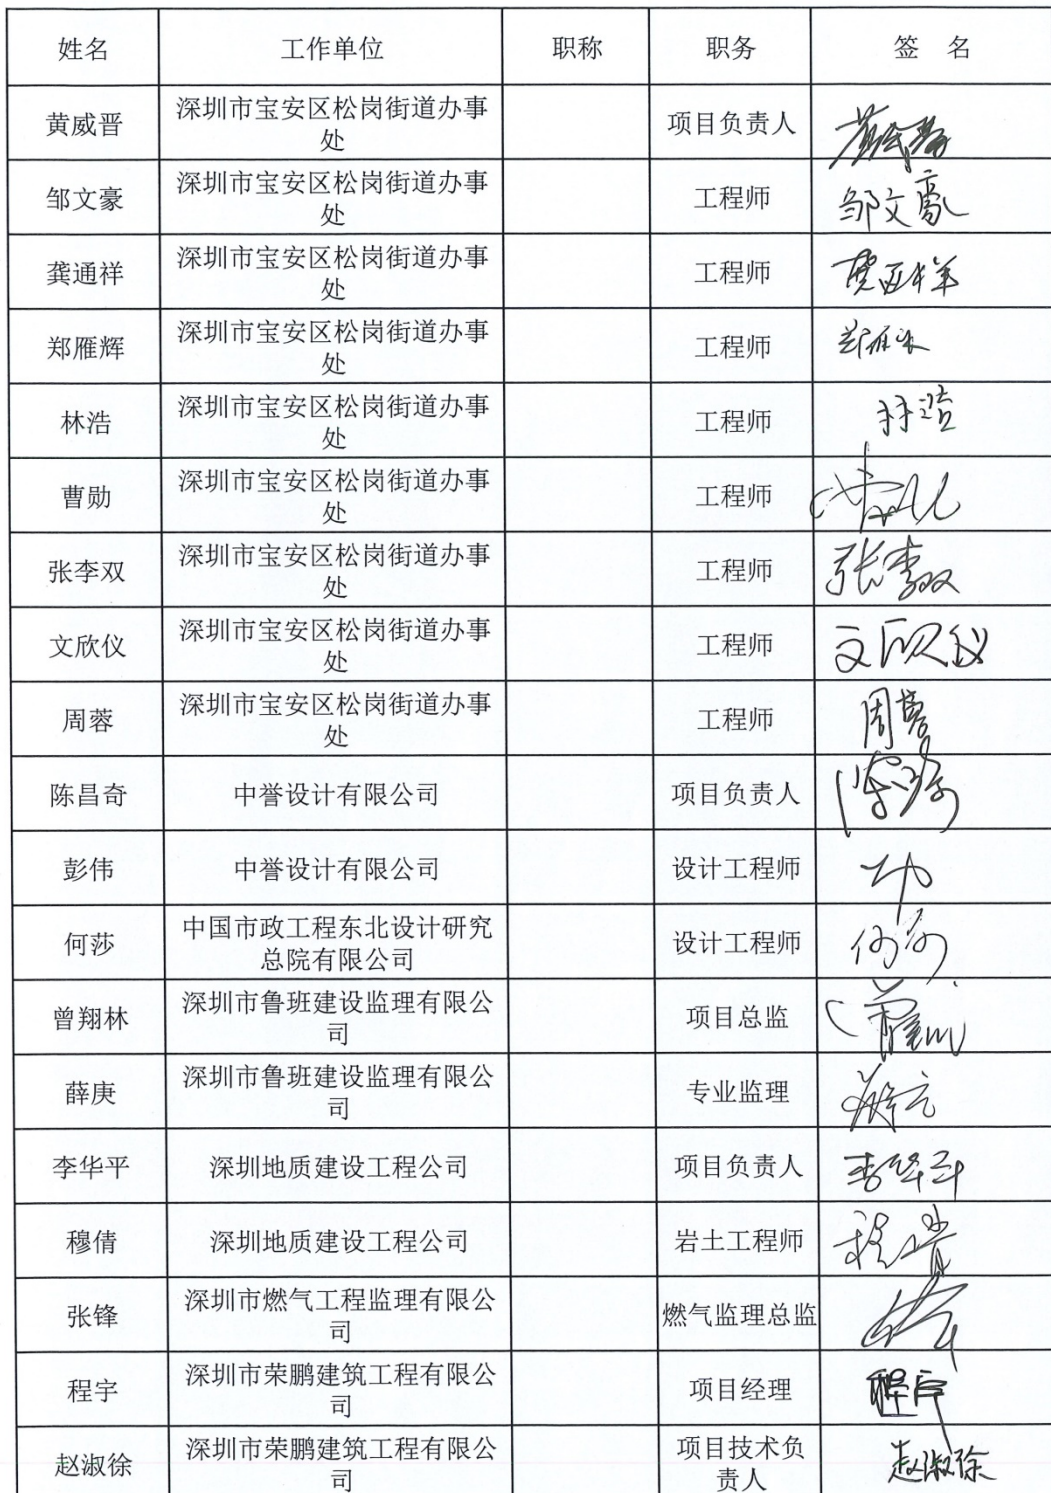 姓名 工作单位 职称 职务 签 名
黄威晋 深圳市宝安区松岗街道办事
处 项目负责人
邹文豪 深圳市宝安区松岗街道办事
处 工程师 邹文豪
龚通祥 深圳市宝安区松岗街道办事
处 工程师
郑雁辉 深圳市宝安区松岗街道办事
处 工程师
林浩 深圳市宝安区松岗街道办事
处 工程师 林浩
曹勋 深圳市宝安区松岗街道办事
处 工程师
张李双 深圳市宝安区松岗街道办事
处 工程师 张李双
文欣仪 深圳市宝安区松岗街道办事
处 工程师 文欣仪
周蓉 深圳市宝安区松岗街道办事
处 工程师 周蓉
陈昌奇 中誉设计有限公司 项目负责人
彭伟 中誉设计有限公司 设计工程师
何莎 中国市政工程东北设计研究
总院有限公司 设计工程师
曾翔林 深圳市鲁班建设监理有限公
司 项目总监
薛庚 深圳市鲁班建设监理有限公
司 专业监理
李华平 深圳地质建设工程公司 项目负责人 李华平
穆倩 深圳地质建设工程公司 岩土工程师
张锋 深圳市燃气工程监理有限公
司 燃气监理总监
程宇 深圳市荣鹏建筑工程有限公
司 项目经理 程宇
赵淑徐 深圳市荣鹏建筑工程有限公
司 项目技术负
责人 赵淑徐